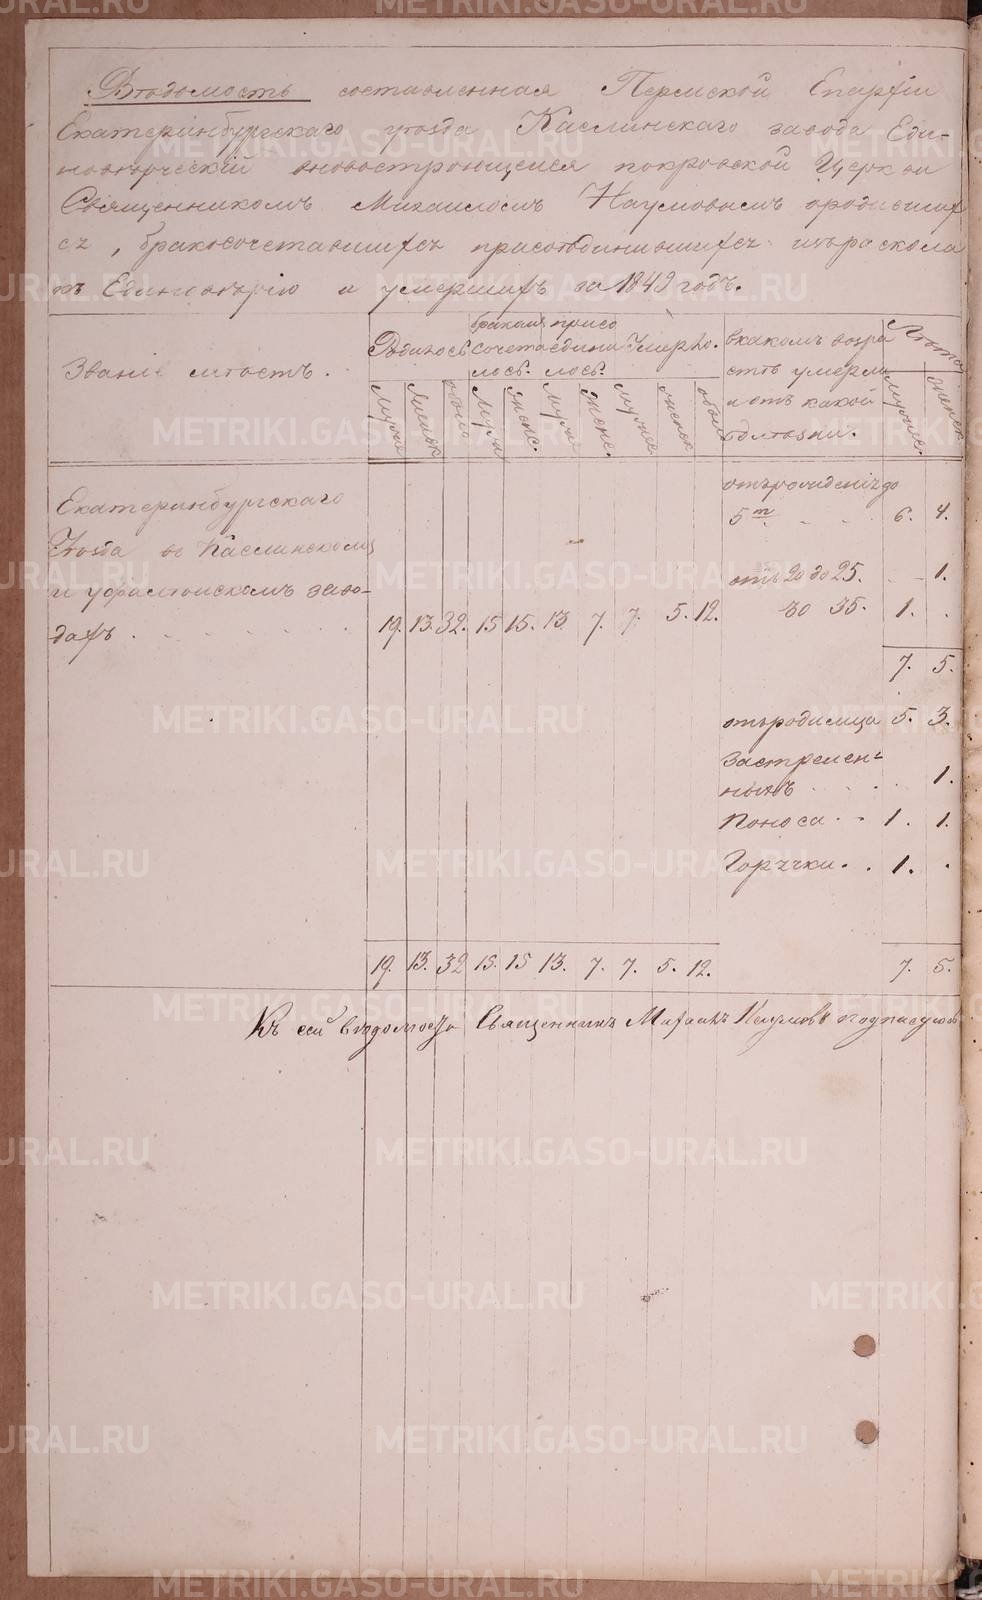 Вѣдомость составленная Пермской Епархіи
Екатеринбургскаго уѣзда Каслинскаго завода Еди-
новѣрческій вновостроющейся покровской Церкви
Священникомъ Михаиломъ Наумовымъ ородившихся
ся, бракосочетавшихся присоединившихся изъраскола
къ Единовѣрію и умершихъ за 1849 годъ.
Званіе мѣстъ.
Родилось
бракомъ сочета лось.
присо едини лось.
Умерло.
вкакомъ возра
стѣ умерли
и отъ какой
болѣзни.
Лѣта
Мужес.
Женск.
обоего
Муж.
Женс.
Муж.
Женс.
мужес.
женск.
обоего
Мужес.
Женск.
Екатеринбургскаго
Уѣзда въ Каслинскомъ
и Уфалѣйскомъ заво-
дахъ
19. 13. 32. 15 15. 13 7. 7. 5. 12.
отърожденія до
5т 6. 4.
отъ 20 до 25. 1.
30 35. 1.
7. 5.
отъродимца 5. 3.
Застрелен-
ныхъ 1.
Поноса 1. 1.
Горячки 1.
19. 13. 32 15. 15 13. 7. 7. 5. 12. 7. 5.
Къ сей вѣдомости Священникъ Михаилъ Наумовъ подписуюсь
METRIKI.GASO-URAL.RU